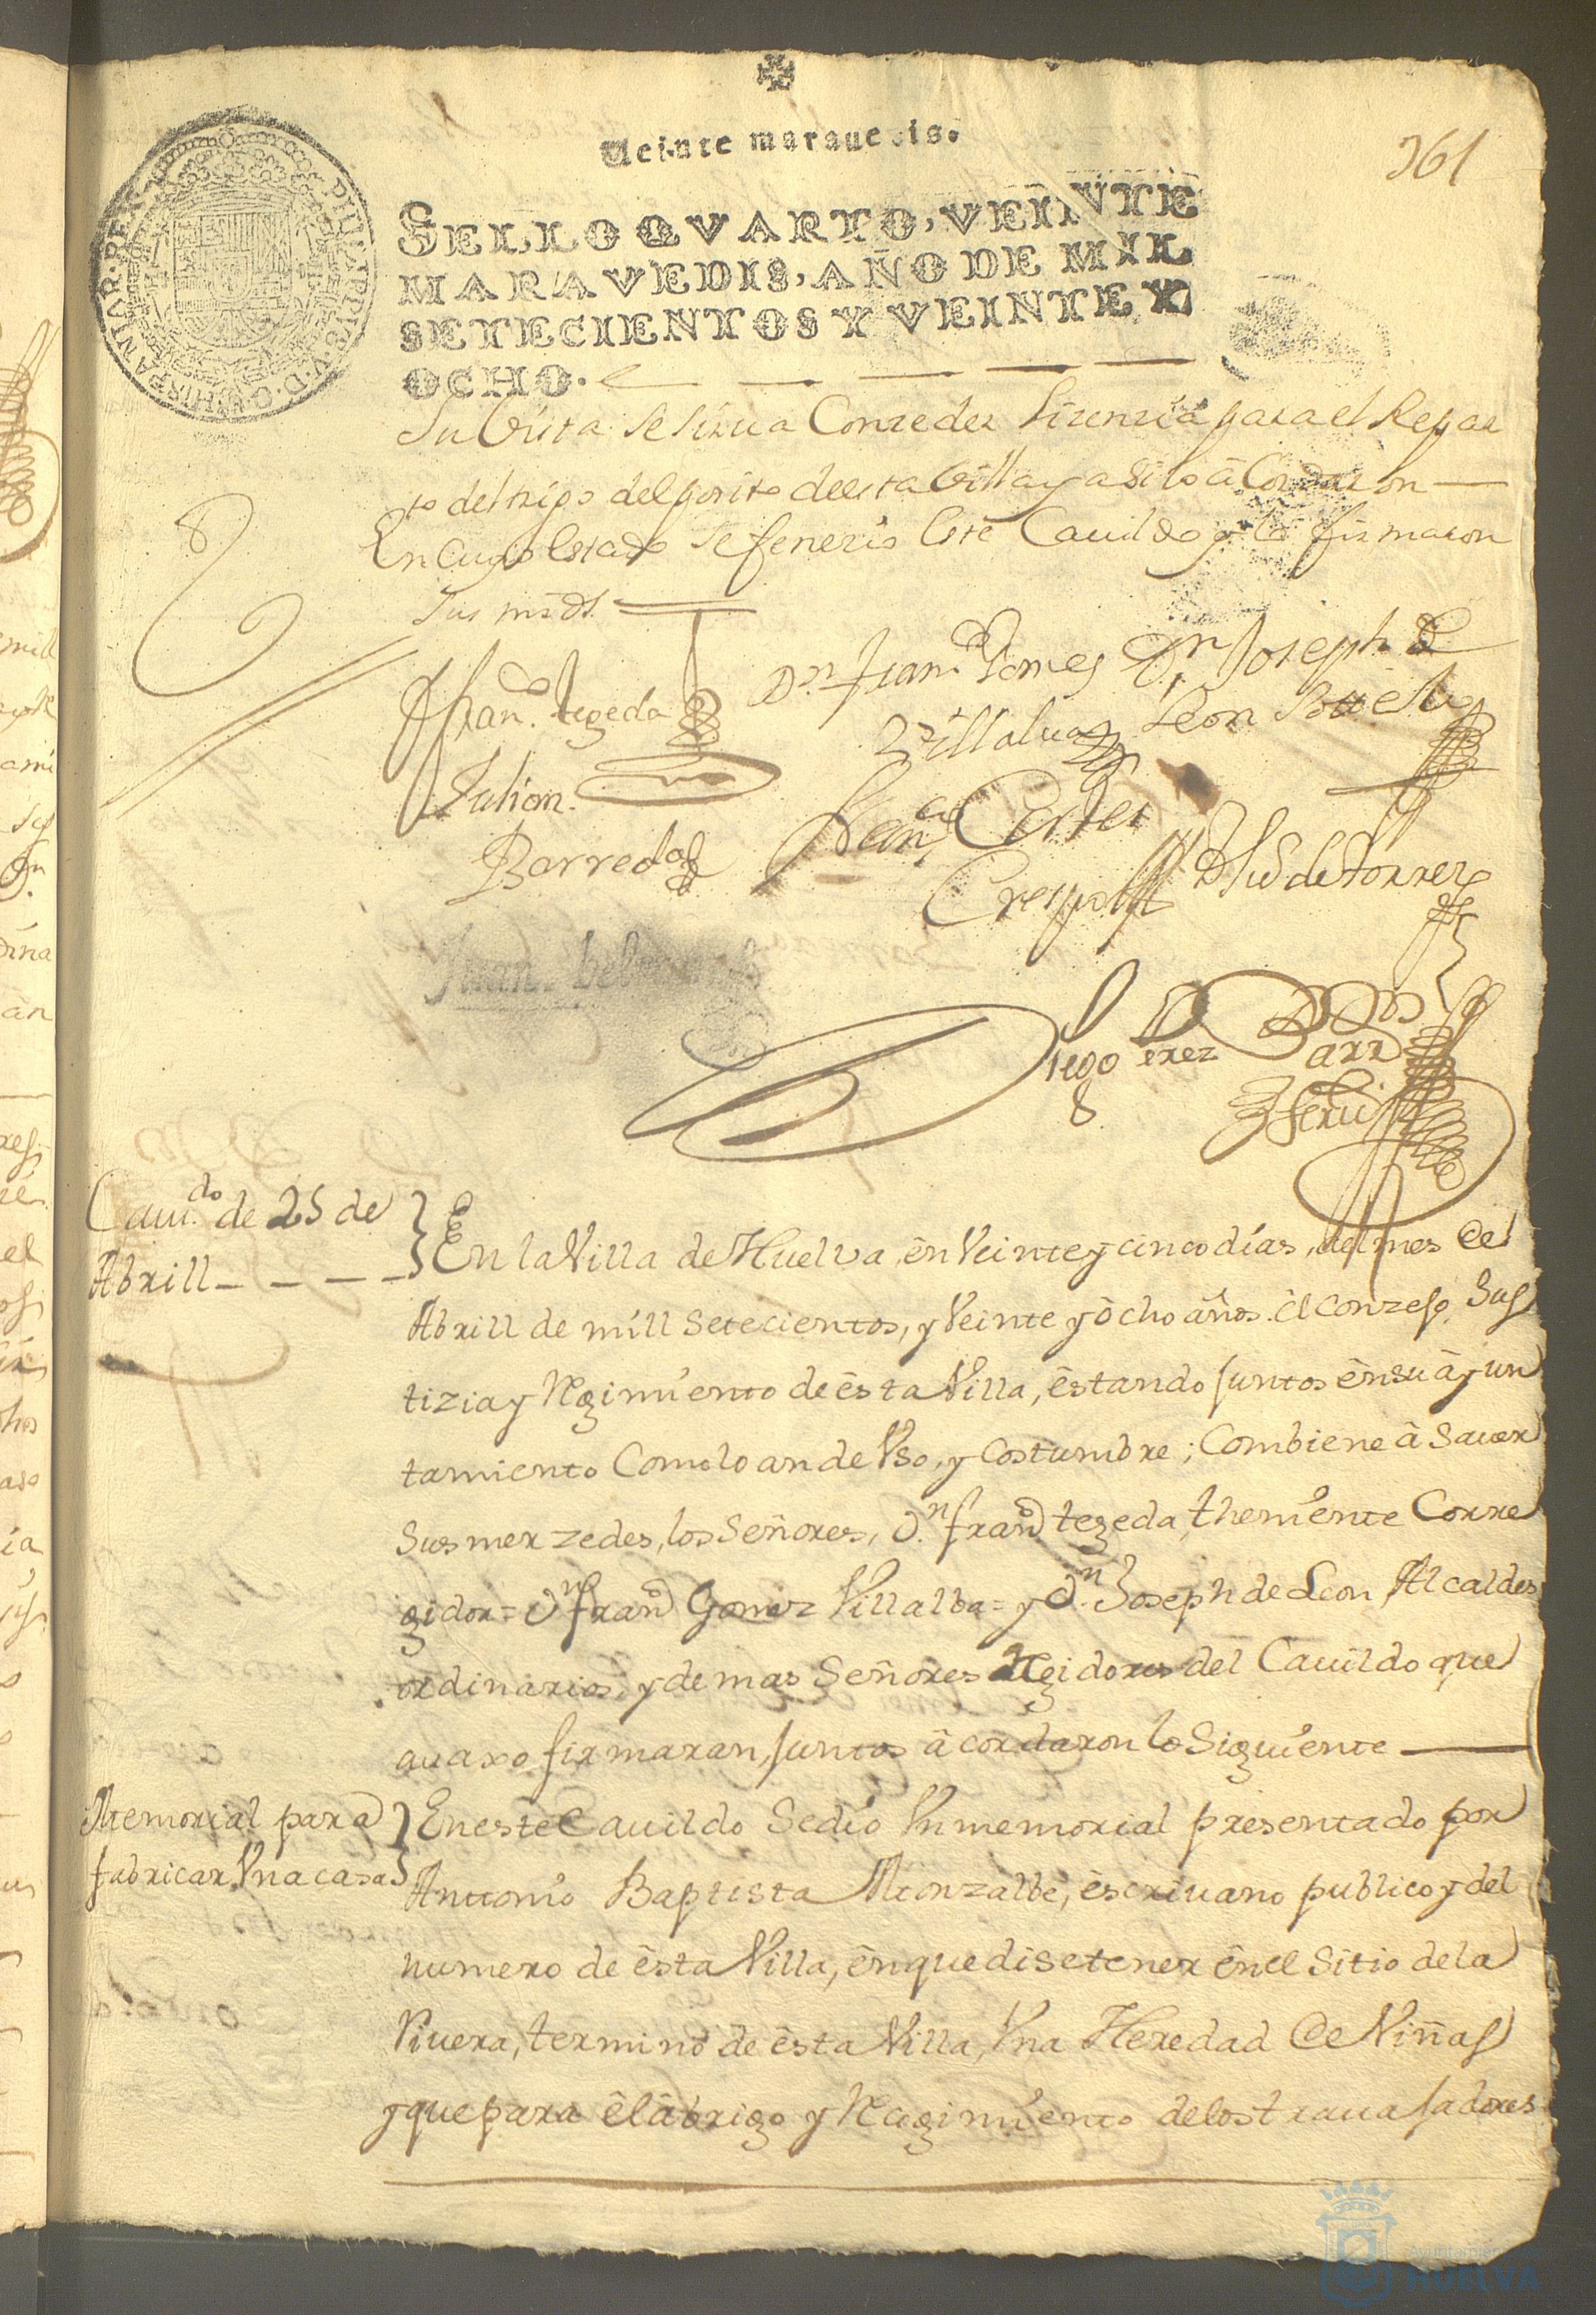 Veinte maravedis.
361
SELLO QVARTO, VEINTE
MARAVEDIS, AÑO DE MIL
SETECIENTOS Y VEINTE Y
OCHO.
PHILIPPUS V D G HISPANIAR REX
su Vista se sirva Conzeder lizenzia para el Repar
to del trigo del posito de esta Villa y asi lo acordaron
En Cuyo estado se fenezio este Cauildo y lo firmaron
sus mrds.
Franco. tegeda
Dn Juan Gomes
Villalua
Dn Joseph de
Leon
Julian
Barreda
Franco Cortes
Crespo
de torres
Juan
Diego Perez Barros
Seru
Cauu.do de 25 de
Abrill
En la Villa de Huelva, ên Veinte y cinco días, del mes de
Abrill de mill setecientos, y Veinte y ôcho âños. êl Conzejo, Jus
tizia y Regimiento de êsta Villa, êstando juntos ênsu âyun
tamiento Como lo an de Vso, y Costumbre; Combiene â Sauer
Sus merzedes, los Señores, Dn. franco tegeda, theniente Corre
gidor = Dn franco Gomez Villalba = y Dn. Joseph de Leon Alcaldes
ordinarios, y demas Señores Regidores del Cauildo que
auaxo firmaran, juntos âcordaron lo Siguiente
Memorial para
fabricar Vna casa
En este Cauildo Sedio Vn memorial presentado por
Antonio Baptista Monzalbe, êscriuano publico y del
numero de êsta Villa, ênque dise tener ênel Sitio dela
Riuera, termino de êsta Villa, Vna Heredad de Viñas
y que para êl âbrigo y Recogimiento delos trauajadores
Ayuntamiento
HUELVA